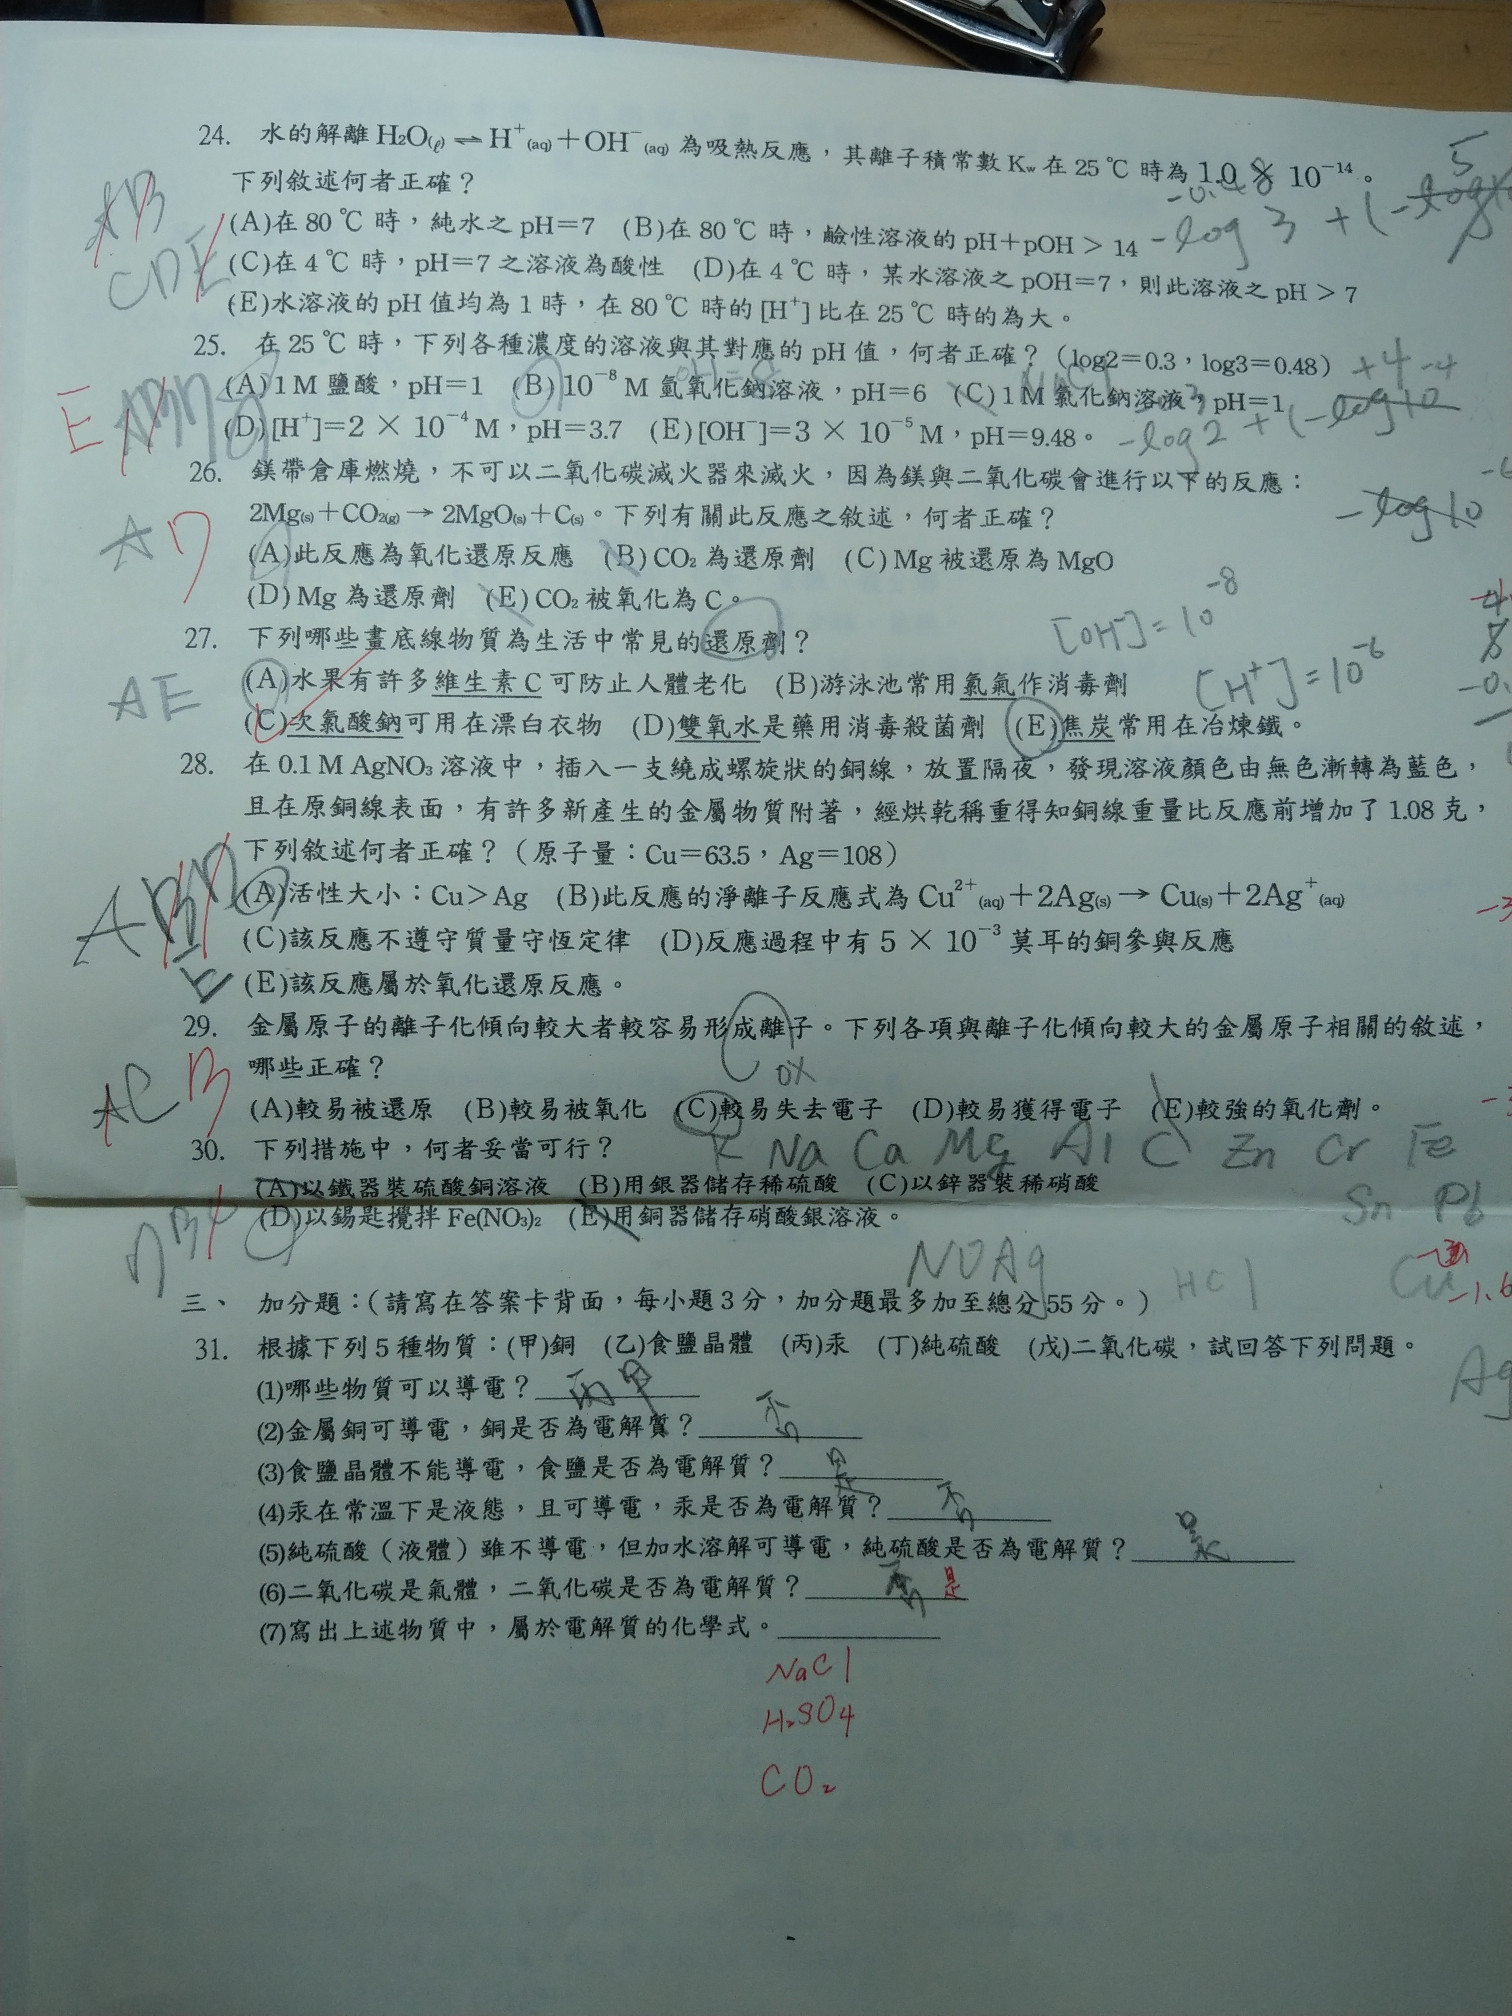 24. 水的解離 H₂O(ℓ) ⇌ H⁺(aq)＋OH⁻(aq) 為吸熱反應，其離子積常數 Kw 在 25 ℃ 時為 1.0 × 10⁻¹⁴。
下列敘述何者正確？
(A)在 80 ℃ 時，純水之 pH＝7 (B)在 80 ℃ 時，鹼性溶液的 pH＋pOH > 14
-log 3 + (-
(C)在 4 ℃ 時，pH＝7 之溶液為酸性 (D)在 4 ℃ 時，某水溶液之 pOH＝7，則此溶液之 pH > 7
CDE
(E)水溶液的 pH 值均為 1 時，在 80 ℃ 時的 [H⁺] 比在 25 ℃ 時的為大。
25. 在 25 ℃ 時，下列各種濃度的溶液與其對應的 pH 值，何者正確？（log2＝0.3，log3＝0.48）
+4 -4
(A) 1 M 鹽酸，pH＝1 (B) 10⁻⁸ M 氫氧化鈉溶液，pH＝6 (C) 1 M 氯化鈉溶液，pH＝1
E
(D) [H⁺]＝2 × 10⁻⁴ M，pH＝3.7 (E) [OH⁻]＝3 × 10⁻⁵ M，pH＝9.48。
-log 2 + (-log 10
26. 鎂帶倉庫燃燒，不可以二氧化碳滅火器來滅火，因為鎂與二氧化碳會進行以下的反應：
2Mg(s)＋CO₂(g) → 2MgO(s)＋C(s)。下列有關此反應之敘述，何者正確？
-log 10
A D
(A)此反應為氧化還原反應 (B) CO₂ 為還原劑 (C) Mg 被還原為 MgO
(D) Mg 為還原劑 (E) CO₂ 被氧化為 C。
27. 下列哪些畫底線物質為生活中常見的還原劑？
[OH⁻] = 10⁻⁸
AE
(A)水果有許多維生素 C 可防止人體老化 (B)游泳池常用氯氣作消毒劑
[H⁺] = 10⁻⁶
(C)次氯酸鈉可用在漂白衣物 (D)雙氧水是藥用消毒殺菌劑 (E)焦炭常用在冶煉鐵。
28. 在 0.1 M AgNO₃ 溶液中，插入一支繞成螺旋狀的銅線，放置隔夜，發現溶液顏色由無色漸轉為藍色，
且在原銅線表面，有許多新產生的金屬物質附著，經烘乾稱重得知銅線重量比反應前增加了 1.08 克，
下列敘述何者正確？（原子量：Cu＝63.5，Ag＝108）
(A)活性大小：Cu > Ag (B)此反應的淨離子反應式為 Cu²⁺(aq)＋2Ag(s) → Cu(s)＋2Ag⁺(aq)
(C)該反應不遵守質量守恆定律 (D)反應過程中有 5 × 10⁻³ 莫耳的銅參與反應
E
(E)該反應屬於氧化還原反應。
29. 金屬原子的離子化傾向較大者較容易形成離子。下列各項與離子化傾向較大的金屬原子相關的敘述，
哪些正確？
OX
AC B
(A)較易被還原 (B)較易被氧化 (C)較易失去電子 (D)較易獲得電子 (E)較強的氧化劑。
30. 下列措施中，何者妥當可行？
K Na Ca Mg Al C Zn Cr Fe
(A)以鐵器裝硫酸銅溶液 (B)用銀器儲存稀硫酸 (C)以鋅器裝稀硝酸
Sn Pb
(D)以錫匙攪拌 Fe(NO₃)₂ (E)用銅器儲存硝酸銀溶液。
NOAg HCl Cu
三、 加分題：（請寫在答案卡背面，每小題 3 分，加分題最多加至總分 55 分。）
31. 根據下列 5 種物質：(甲)銅 (乙)食鹽晶體 (丙)汞 (丁)純硫酸 (戊)二氧化碳，試回答下列問題。
Ag
(1)哪些物質可以導電？ 丙甲
(2)金屬銅可導電，銅是否為電解質？ 否
(3)食鹽晶體不能導電，食鹽是否為電解質？ 是
(4)汞在常溫下是液態，且可導電，汞是否為電解質？ 否
(5)純硫酸（液體）雖不導電，但加水溶解可導電，純硫酸是否為電解質？ 是
(6)二氧化碳是氣體，二氧化碳是否為電解質？ 否 是
(7)寫出上述物質中，屬於電解質的化學式。
NaCl
H₂SO₄
CO₂